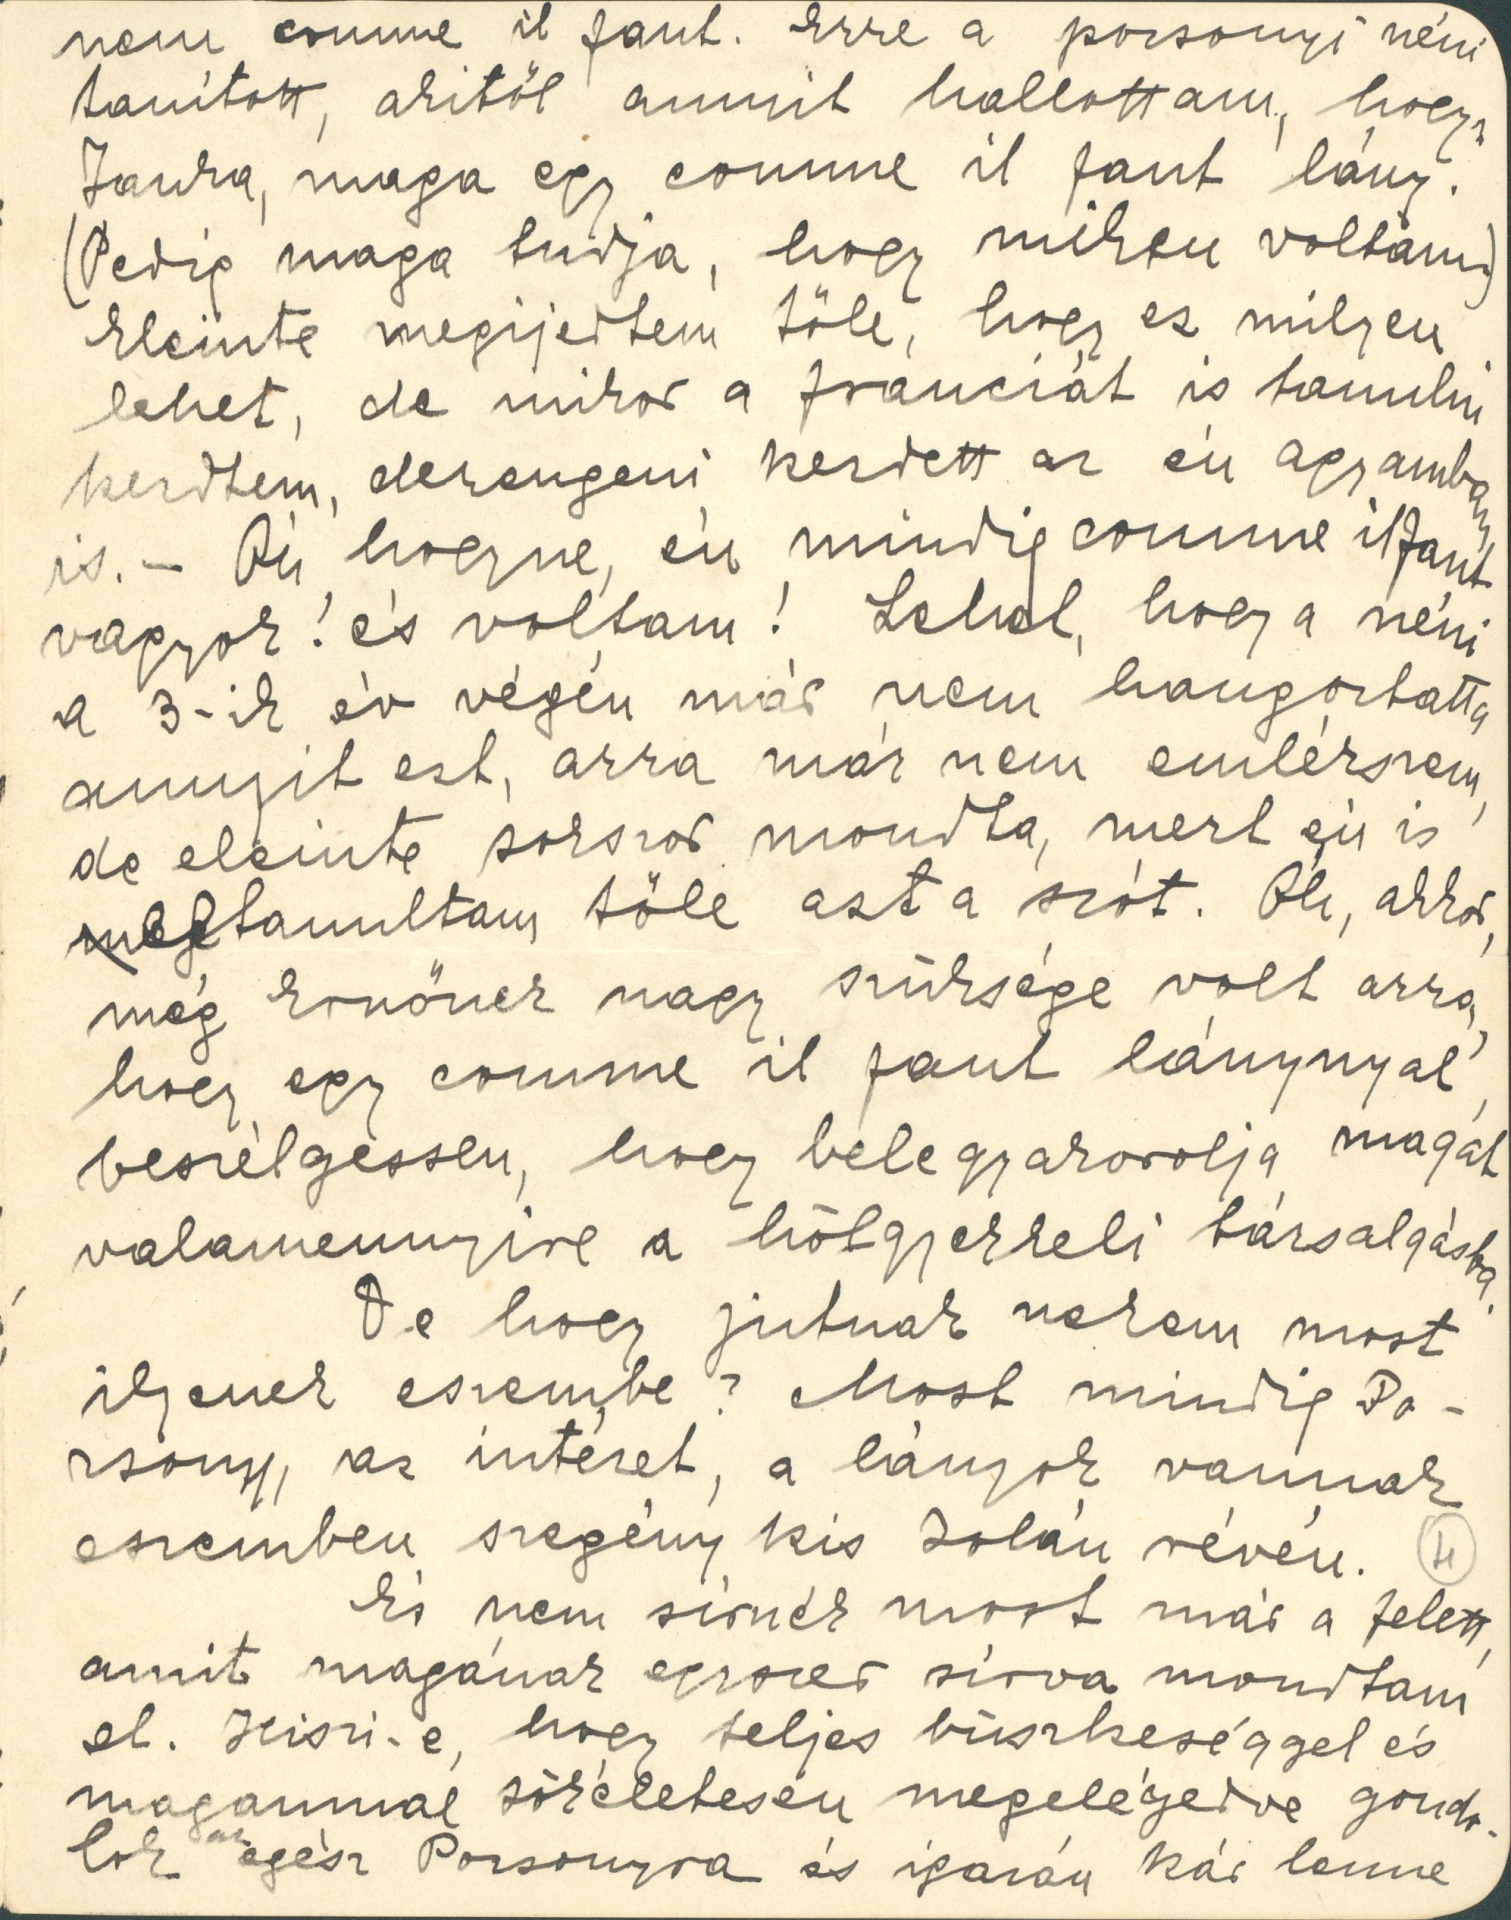 nem comme il faut. Erre a pozsonyi néni
tanított, akitöl annyit hallottam, hogy:
Janka, maga egy comme il faut lány.
(Pedig maga tudja, hogy miken voltam)
Eleinte megijedtem töle, hogy ez milyen
lehet, de mikor a franciát is tanulni
kezdtem, derengeni kezdett az én agyamban
is. – Óh, hogyne, én mindig comme il faut
vagyok! és voltam! Lehet, hogy a néni
a 3-ik év végén már nem hangoztatta
annyit ezt, arra már nem emlékszem,
de eleinte sokszor mondta, mert én is
megtanultam töle azt a szót. Óh, akkor,
még könnek nagy szüksége volt arra,
hogy egy comme il faut lánynyal
beszélgessen, hogy belegyakorolja magát
valamennyire a hölgyekkeli társalgásba.
De hogy jutnak nekem most
ilyenek eszembe? Most mindig Po-
zsony, az intézet, a lányok vannak
eszemben szegény kis Zolán révén. 4
És nem sírnék most már a felett,
amit magának egyszer sírva mondtam
el. Hiszi-e, hogy teljes büszkeséggel és
magammal tökéletesen megelégedve gondo-
lok az egész Pozsonyra és igazán kár lenne